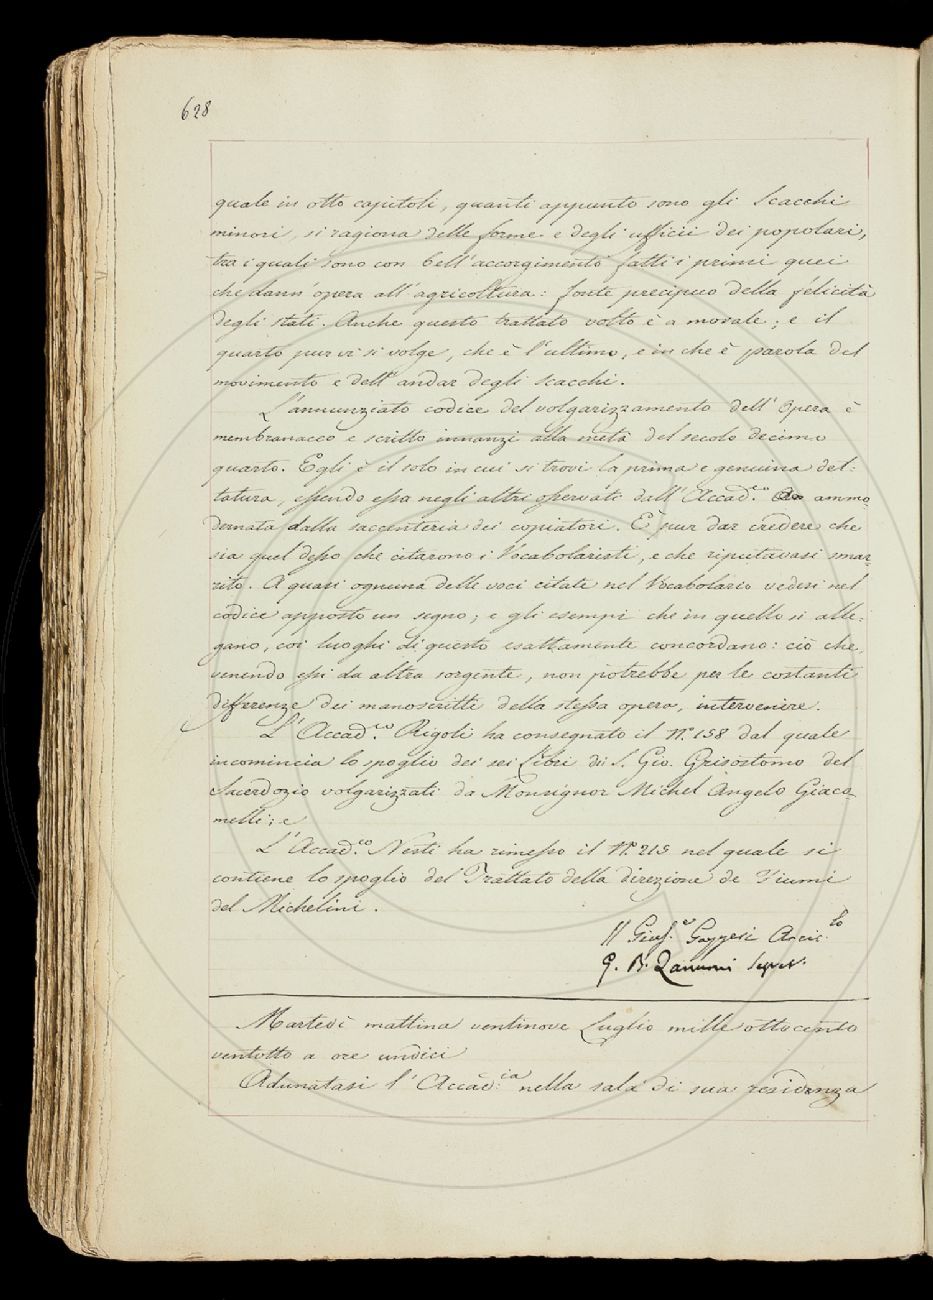 628
quale in otto capitoli, quanti appunto sono gli Scacchi
minori, si ragiona delle forme e degli ufficii dei popolari,
tra i quali sono con bell'accorgimento fatti i primi quei
che dann'opera all'agricoltura: fonte precipuo della felicità
degli stati. Anche questo trattato volto è a morale; e il
quarto pur vi si volge, che è l'ultimo, e in che è parola del
movimento e dell'andar degli scacchi.
L'annunziato codice del volgarizzamento dell'Opera è
membranaceo e scritto innanzi alla metà del secolo decimo
quarto. Egli è il solo in cui si trovi la prima e genuina det:
tatura, essendo essa negli altri osservati dall'Accad.co ammo
dernata dalla saccenteria dei copiatori. E pur dar credere che
sia quel desso che citarono i Vocabolaristi, e che riputavasi smar
rito. A quasi ognuna delle voci citate nel Vocabolario vedesi nel
codice apposto un segno; e gli esempi che in quello si alle:
gano, coi luoghi di questo esattamente concordano: ciò che,
venendo essi da altra sorgente, non potrebbe per le costanti
differenze dei manoscritti della stessa opera, intervenire.
L'Accad.co Rigoli ha consegnato il N.º 158 dal quale
incomincia lo spoglio dei sei Libri di S. Gio. Grisostomo del
Sacerdozio volgarizzati da Monsignor Michel Angelo Giaco
melli; e
L'Accad.co Nesti ha rimesso il N.º 215 nel quale si
contiene lo spoglio del Trattato della direzione de Fiumi
del Michelini.
Il Gius.e Gazzeri Arcic.lo
G. B. Zannoni Segret.
Martedì mattina ventinove Luglio mille ottocento
ventotto a ore undici
Adunatasi l'Accad.ia nella sala di sua residenza